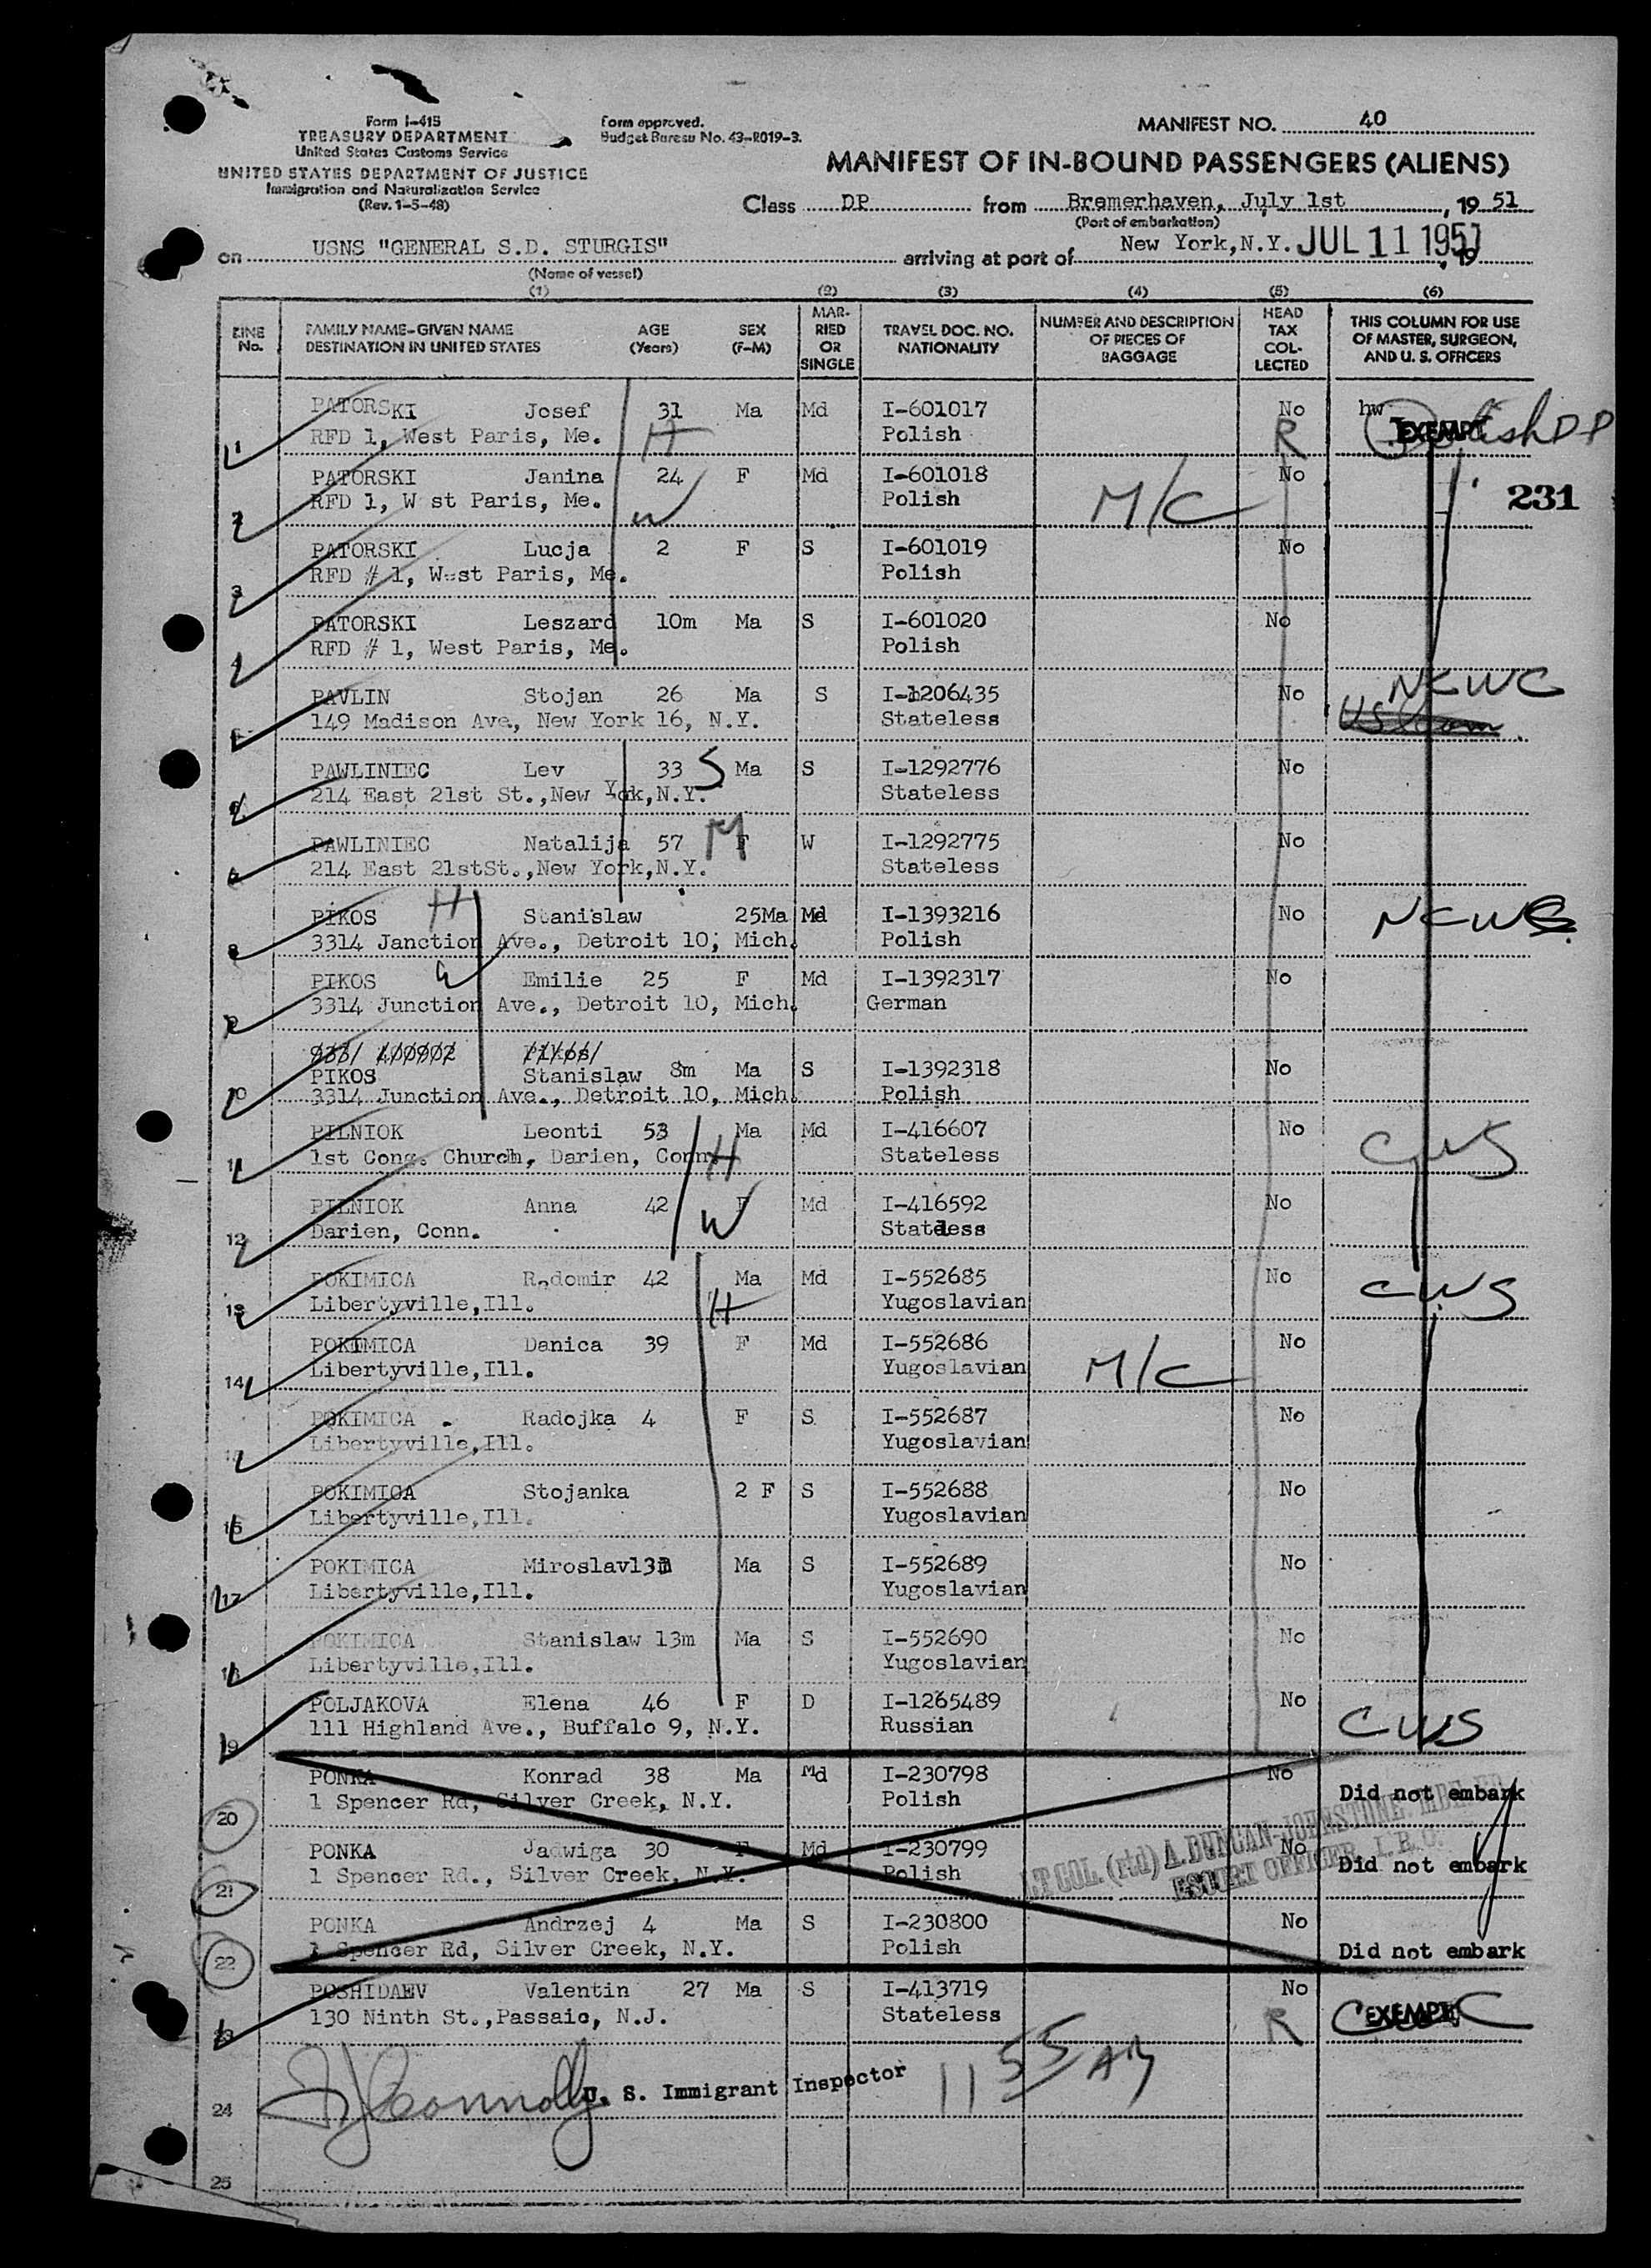 Form I-415
TREASURY DEPARTMENT
United States Customs Service
UNITED STATES DEPARTMENT OF JUSTICE
Immigration and Naturalization Service
(Rev. 1-5-48)
Form approved.
Budget Bureau No. 43-R019-3.
MANIFEST NO. 40
MANIFEST OF IN-BOUND PASSENGERS (ALIENS)
Class DP from Bremerhaven, July 1st, 19 51
(Port of embarkation)
on USNS "GENERAL S.D. STURGIS" arriving at port of New York, N.Y. JUL 11 1951, 19
(Name of vessel)
(1) (2) (3) (4) (5) (6)
LINE No. FAMILY NAME-GIVEN NAME DESTINATION IN UNITED STATES AGE (Years) SEX (F-M) MARRIED OR SINGLE TRAVEL DOC. NO. NATIONALITY NUMBER AND DESCRIPTION OF PIECES OF BAGGAGE HEAD TAX COLLECTED THIS COLUMN FOR USE OF MASTER, SURGEON, AND U. S. OFFICERS
1 PATORSKI Josef 31 Ma Md I-601017 No hw EXEMPT
RFD 1, West Paris, Me. H Polish R Polish DP
2 PATORSKI Janina 24 F Md I-601018 No
RFD 1, W st Paris, Me. W Polish M/C 231
3 PATORSKI Lucja 2 F S I-601019 No
RFD # 1, West Paris, Me. Polish
4 PATORSKI Leszard 10m Ma S I-601020 No
RFD # 1, West Paris, Me. Polish
5 PAVLIN Stojan 26 Ma S I-1206435 No NCWC
149 Madison Ave, New York 16, N.Y. Stateless
6 PAWLINIEC Lev 33 S Ma S I-1292776 No
214 East 21st St.,New Yok,N.Y. Stateless
7 PAWLINIEC Natalija 57 M F W I-1292775 No
214 East 21stSt.,New York,N.Y. Stateless
8 PIKOS H Stanislaw 25Ma Md I-1393216 No NCWC
3314 Janction Ave., Detroit 10, Mich. Polish
9 PIKOS W Emilie 25 F Md I-1392317 No
3314 Junction Ave., Detroit 10, Mich. German
10 PIKOS Stanislaw 8m Ma S I-1392318 No
3314 Junction Ave., Detroit 10, Mich. Polish
11 PILNIOK Leonti 53 Ma Md I-416607 No CWS
1st Cong. Church, Darien, Conn. H Stateless
12 PILNIOK Anna 42 F Md I-416592 No
Darien, Conn. W Stateless
13 POKIMICA Radomir 42 Ma Md I-552685 No CWS
Libertyville,Ill. H Yugoslavian
14 POKIMICA Danica 39 F Md I-552686 No
Libertyville,Ill. Yugoslavian M/C
15 POKIMICA Radojka 4 F S I-552687 No
Libertyville,Ill. Yugoslavian
16 POKIMICA Stojanka 2 F S I-552688 No
Libertyville,Ill. Yugoslavian
17 POKIMICA Miroslav13m Ma S I-552689 No
Libertyville,Ill. Yugoslavian
18 POKIMICA Stanislaw 13m Ma S I-552690 No
Libertyville,Ill. Yugoslavian
19 POLJAKOVA Elena 46 F D I-1265489 No
111 Highland Ave., Buffalo 9, N.Y. Russian CWS
20 PONKA Konrad 38 Ma Md I-230798 No Did not embark
1 Spencer Rd, Silver Creek, N.Y. Polish
21 PONKA Jadwiga 30 F Md I-230799 No Did not embark
1 Spencer Rd., Silver Creek, N.Y. Polish
LT COL. (rtd) A. DUNCAN-JOHNSTONE.
ESCORT OFFICER, I. R. O.
22 PONKA Andrzej 4 Ma S I-230800 No
1 Spencer Rd, Silver Creek, N.Y. Polish Did not embark
23 POSHIDAEV Valentin 27 Ma S I-413719 No
130 Ninth St.,Passaic, N.J. Stateless R EXEMPT
24 U. S. Immigrant Inspector 11 55 AM
25